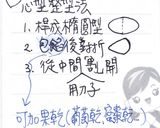 心型整型法
1. 桿成橢圓型
2. 後對折
3. 從中間割開
用刀子
可加果乾(葡萄乾、蔓越乾